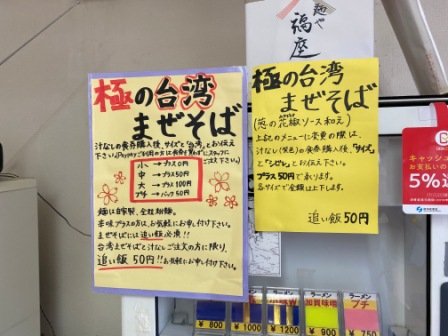 麺や
福座
極の台湾
まぜそば
汁なしの食券購入後、サイズと「台湾」とお伝え
下さい
小→プラス0円
中→プラス50円
大→プラス100円
プチ→バック50円
麺は自家製、全粒粉麺。
辛味プラスの方は、お気軽にお申し付け下さい。
まぜそばには追い飯必須!!
台湾まぜそばと汁なしご注文の方に限り、
追い飯 50円!!お気軽にお申し付け下さい。
極の台湾
まぜそば
(葱の花椒ソース和え)
上記のメニューに変更の際は、
汁なし(黄色)の食券購入後、「サイズ」
と「シビレ」とお伝え下さい。
プラス50円で承ります。
各サイズで金額は上下します。
追い飯50円
キャッシュ
お支払いの
5%
ラーメン
ラーメン
プチ
¥800
¥1000
¥1200
¥900
¥750